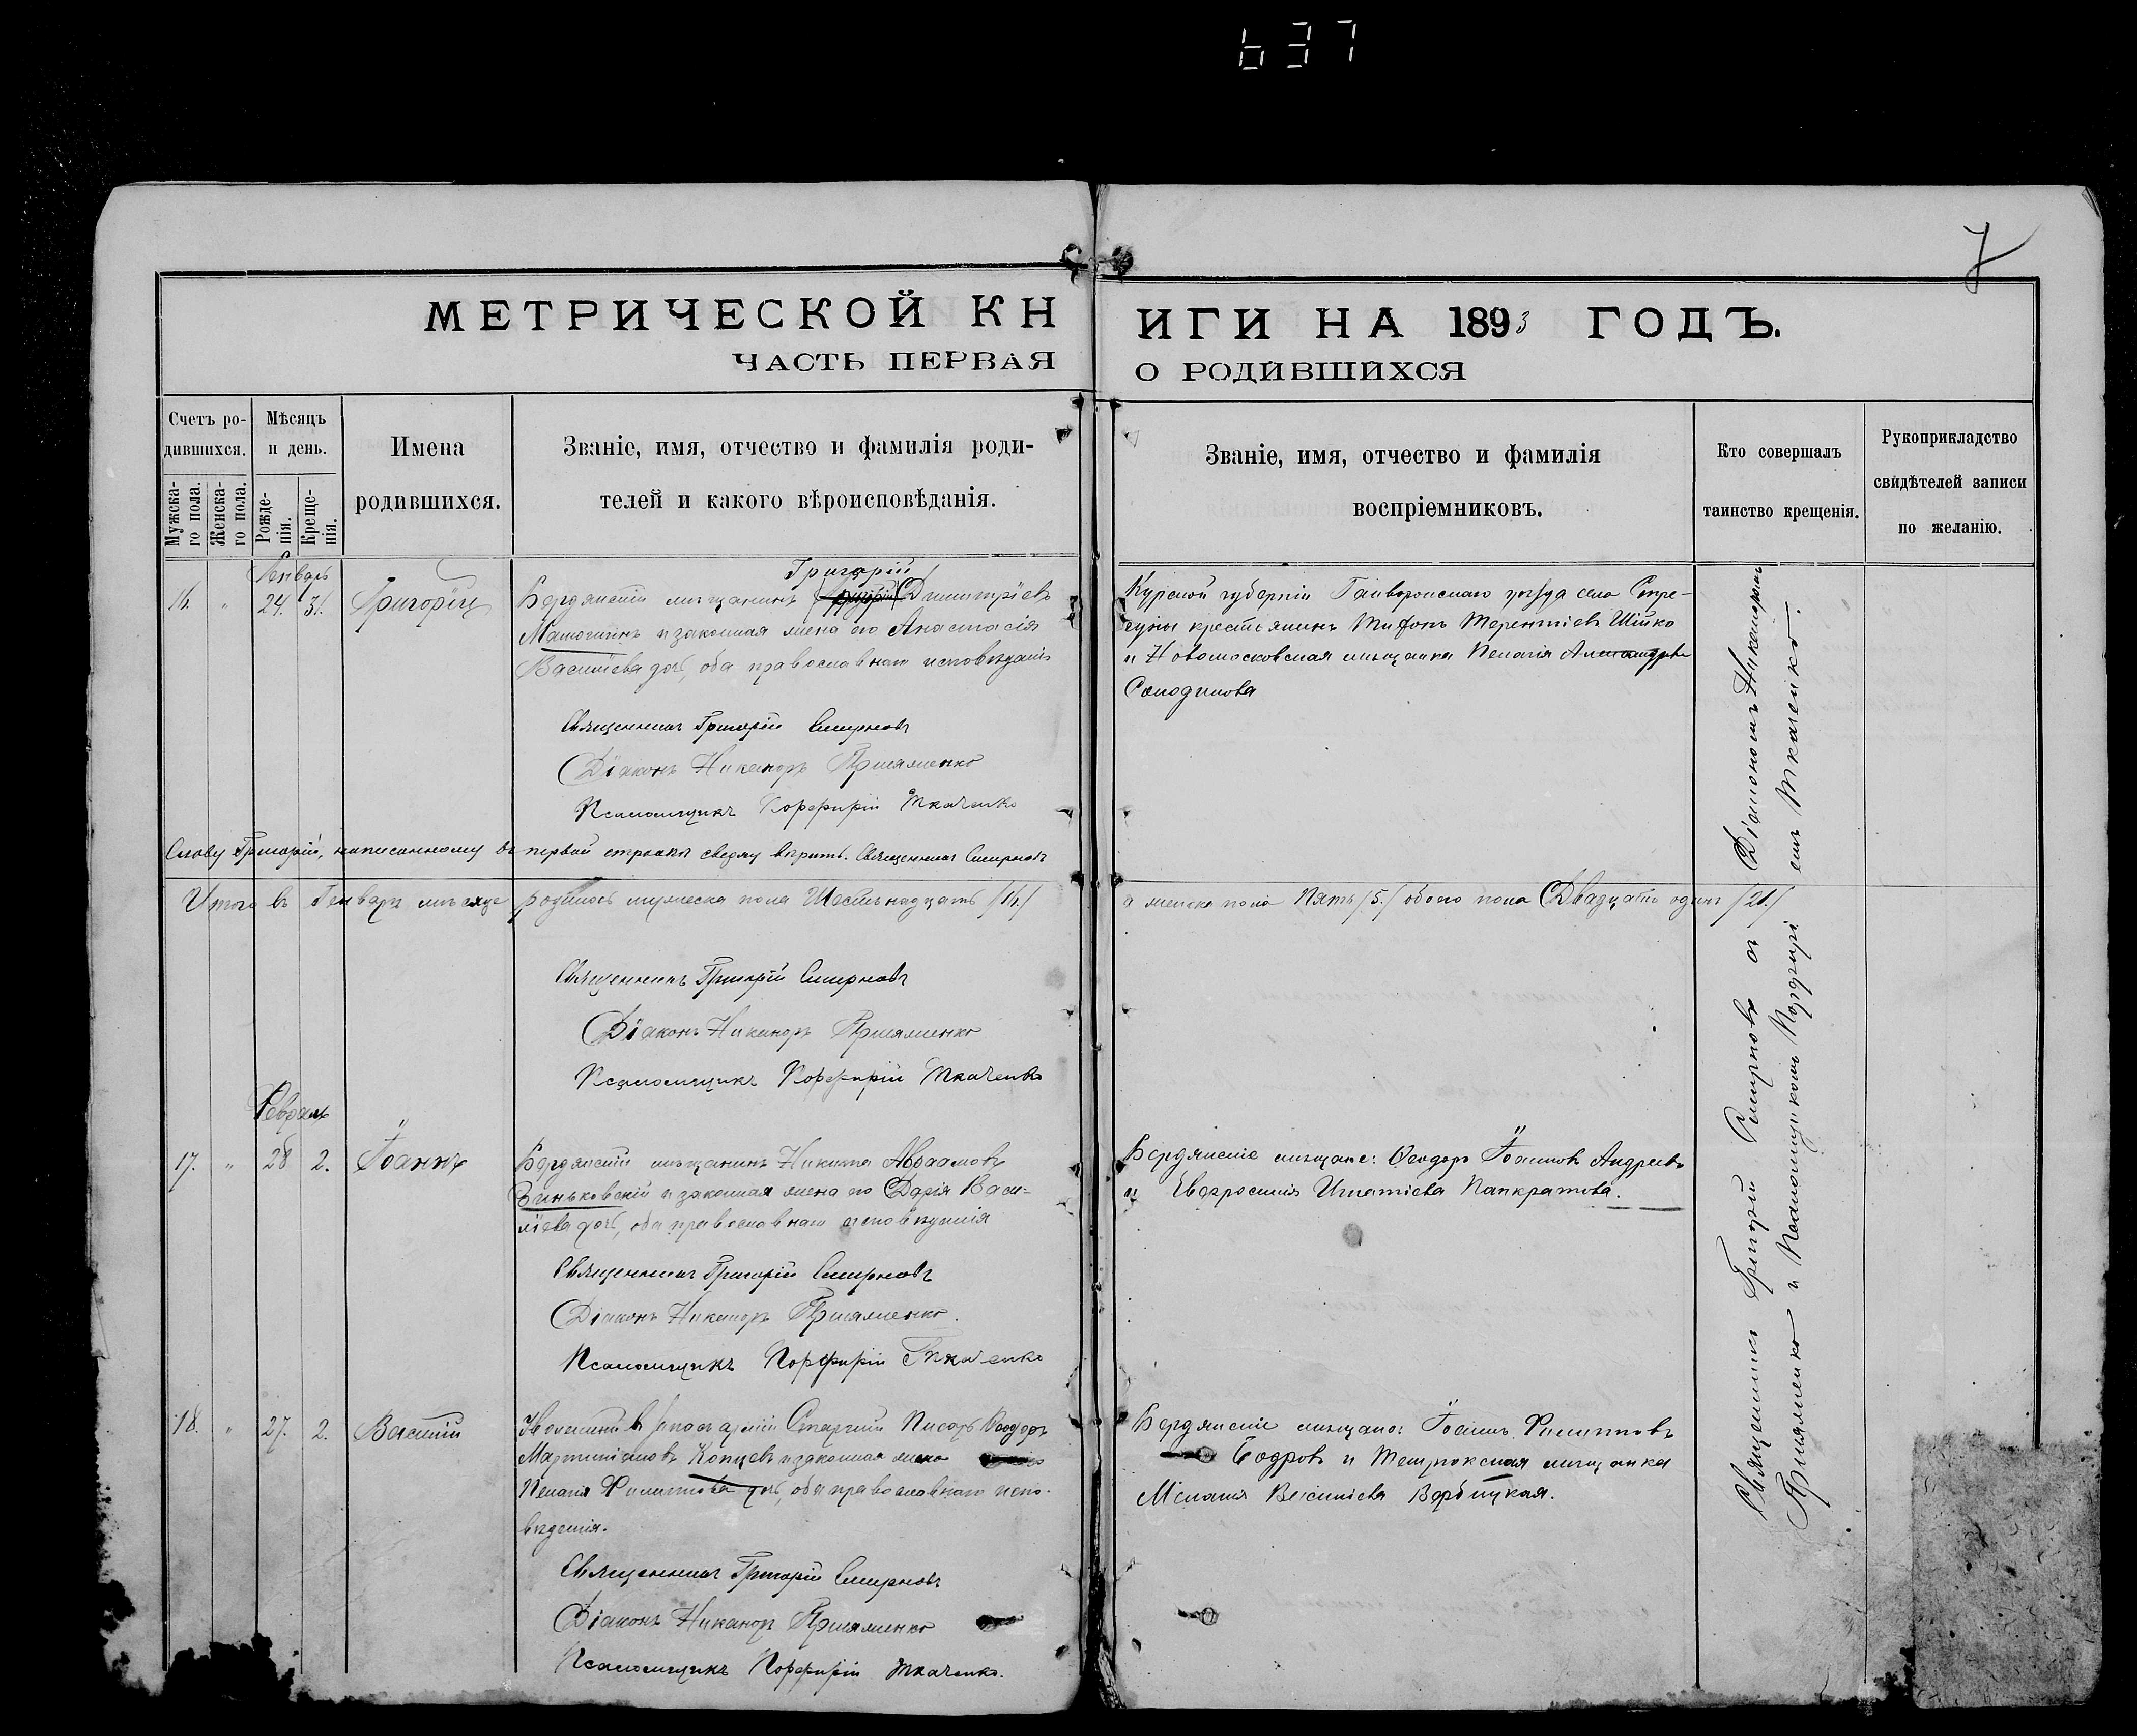 637
7
МЕТРИЧЕСКОЙ КНИГИ НА 1893 ГОДЪ.
ЧАСТЬ ПЕРВАЯ О РОДИВШИХСЯ
Счетъ ро-
дившихся.
Мужска-
го пола.
Женска-
го пола.
Мѣсяцъ
и день.
Рожде-
нія.
Креще-
нія.
Имена
родившихся.
Званіе, имя, отчество и фамилія роди-
телей и какого вѣроисповѣданія.
Званіе, имя, отчество и фамилія
воспріемниковъ.
Кто совершалъ
таинство крещенія.
Рукоприкладство
свидѣтелей записи
по желанію.
Январь
16. " 24. 31. Григорій
Григорій
Бердянскій мѣщанинъ Димитріевъ
и законная жена его Анастасія
Василіева дочь, оба православнаго исповѣданія
Священникъ Григорій Смирновъ
Діаконъ Никаноръ
Псаломщикъ Порфирій Ткаченко
Слову Григорій, написанному въ первой строкѣ сверху вѣрить. Священникъ Смирновъ
Курской губерніи уѣзда села
крестьянинъ Терентіевъ Шійко
и Новомосковская мѣщанка Пелагія
Итого въ Генварѣ мѣсяцѣ родилось мужеска пола Шестьнадцать /16./
а женска пола Пять /5./ обоего пола Двадцать одинъ /21./
Священникъ Григорій Смирновъ
Діаконъ Никаноръ
Псаломщикъ Порфирій Ткаченко
Февраль
17. " 28 2. Іоаннъ
Бердянскій мѣщанинъ Никита Авраамовъ
Зиньковскій и законная жена его Дарія Васи-
ліева дочь, оба православнаго исповѣданія
Священникъ Григорій Смирновъ
Діаконъ Никаноръ
Псаломщикъ Порфирій Ткаченко
Бердянскіе мѣщане: Ѳеодоръ Іоанновъ Андреевъ
и Евфросинія Игнатіева Панкратова.
18. " 27. 2. Василій
Старшій Писарь Ѳеодоръ
Мартиніановъ Копцевъ и законная жена
Пелагія Филиппова дочь, оба православнаго испо-
вѣданія.
Священникъ Григорій Смирновъ
Діаконъ Никаноръ
Псаломщикъ Порфирій Ткаченко.
Бердянскіе мѣщане: Іоаннъ Филипповъ
Бодровъ и мѣщанка
Василіева Вербицкая.
Священникъ Григорій Смирновъ съ Діакономъ Никаноромъ
и Псаломщикомъ Порфирі
емъ Ткаченко.